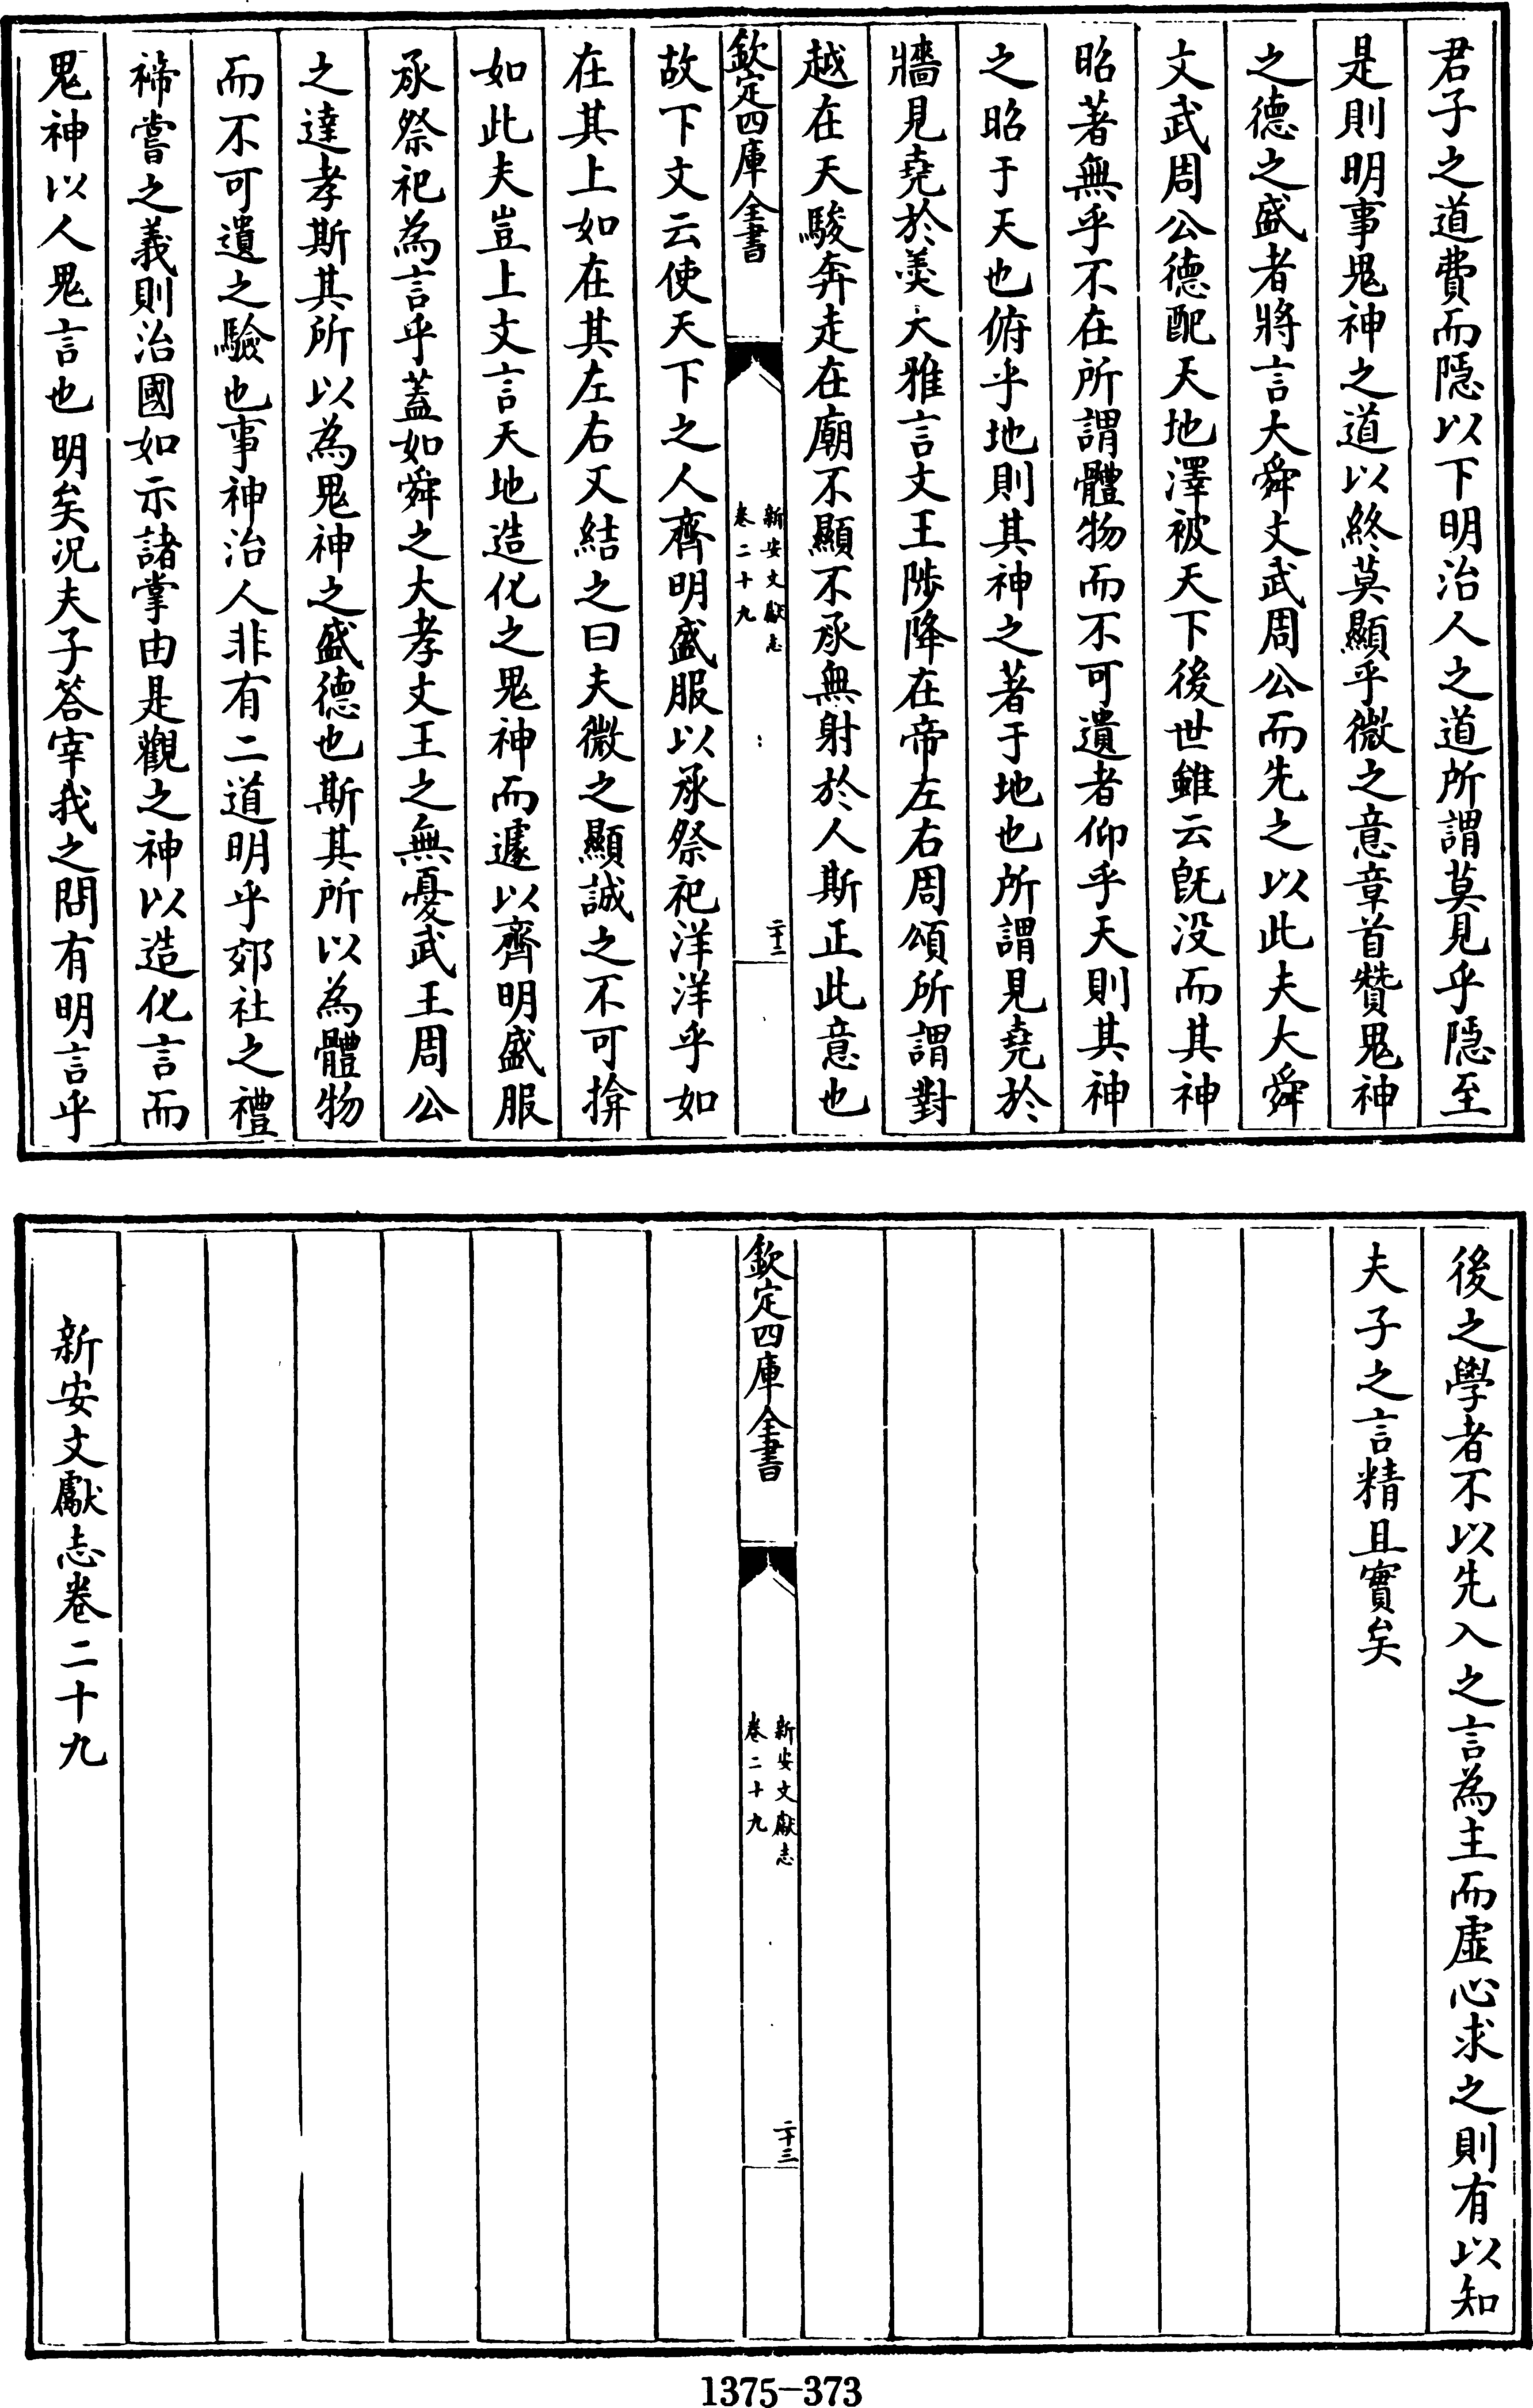 君子之道費而隱以下明治人之道所謂莫見乎隱至
是則明事鬼神之道以終莫顯乎微之意章首贊鬼神
之德之盛者將言大舜文武周公而先之以此夫大舜
文武周公德配天地澤被天下後世雖云既没而其神
昭著無乎不在所謂體物而不可遺者仰乎天則其神
之昭于天也俯乎地則其神之著于地也所謂見堯於
牆見堯於羮大雅言文王陟降在帝左右周頌所謂對
越在天駿奔走在廟不顯不承無射於人斯正此意也
欽定四庫全書
新安文獻志
卷二十九
二十二
故下文云使天下之人齊明盛服以承祭祀洋洋乎如
在其上如在其左右又結之曰夫微之顯誠之不可揜
如此夫豈上文言天地造化之鬼神而遽以齊明盛服
承祭祀為言乎蓋如舜之大孝文王之無憂武王周公
之達孝斯其所以為鬼神之盛德也斯其所以為體物
而不可遺之驗也事神治人非有二道明乎郊社之禮
禘嘗之義則治國如示諸掌由是觀之神以造化言而
鬼神以人鬼言也明矣況夫子答宰我之問有明言乎
後之學者不以先入之言為主而虛心求之則有以知
夫子之言精且實矣
欽定四庫全書
新安文獻志
卷二十九
二十三
新安文獻志卷二十九
1375-373